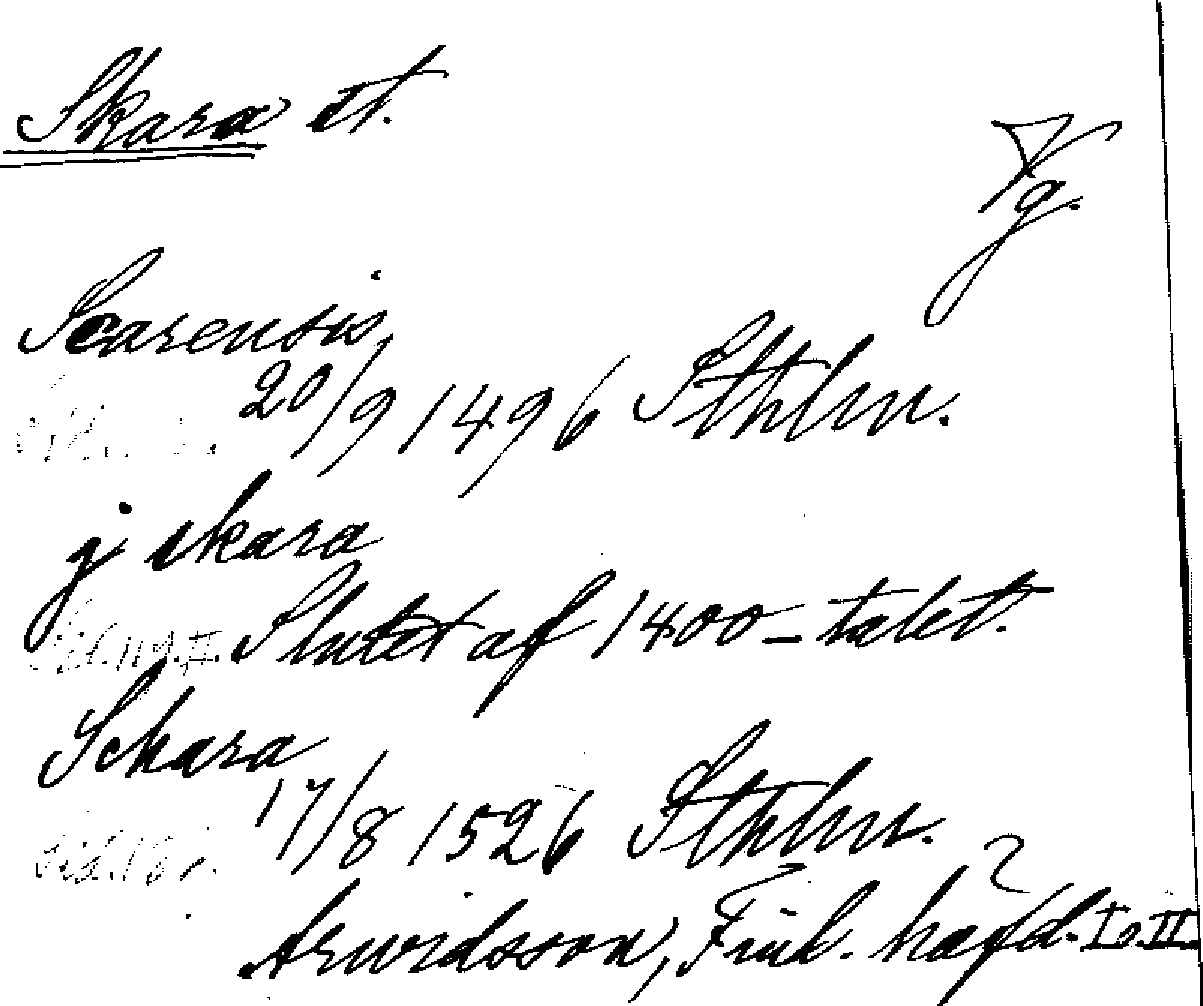 Skara st.
Vg.
Scarensis,
20/9 1496 Sthlm.
j skara
Slutet af 1400-talet.
Schara
17/8 1526 Sthlm.
Arwidsson, Finl. häfd. I o. II.